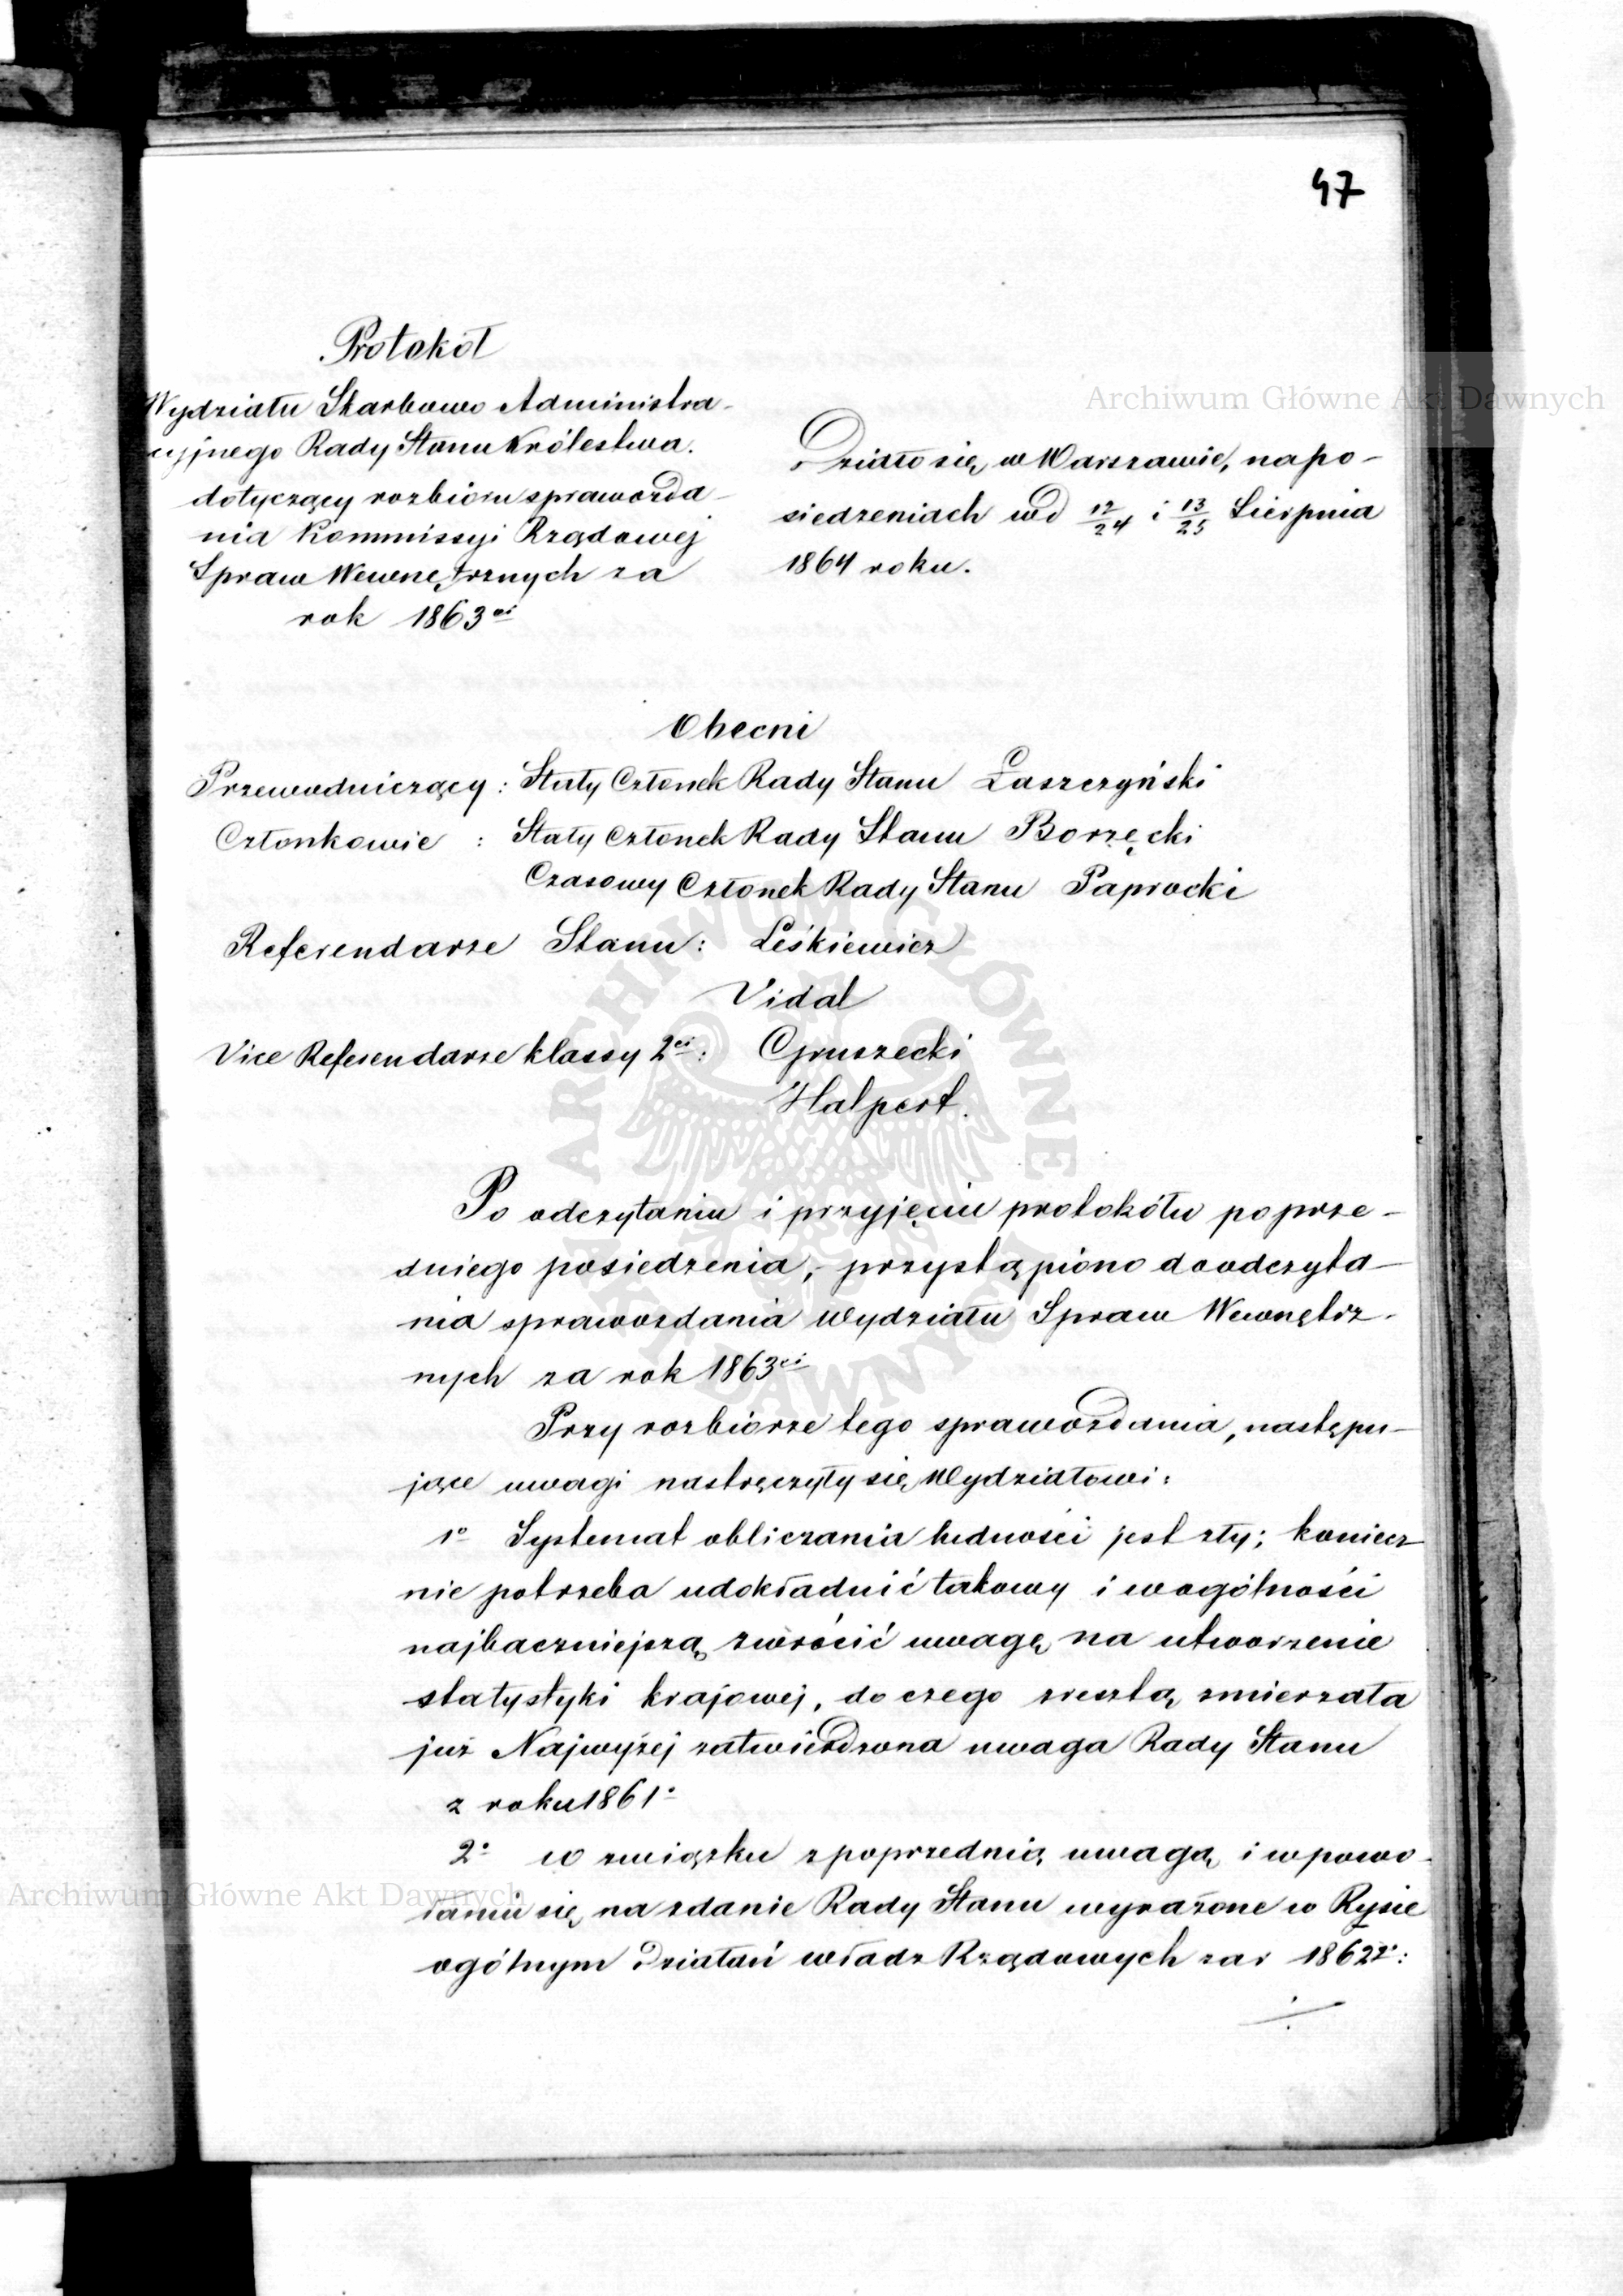 47
Protokół
Wydziału Skarbowo Administra-
cyjnego Rady Stanu Królestwa.
dotyczący rozbioru sprawozda-
nia Kommissyi Rządowej
Spraw Wewnętrznych za
rok 1863ci
Działo się w Warszawie, na po-
siedzeniach w d 12/24 i 13/25 Sierpnia
1864 roku.
Obecni
Przewodniczący: Stały Członek Rady Stanu Łaszczyński
Członkowie : Stały Członek Rady Stanu Borzęcki
Czasowy Członek Rady Stanu Paprocki
Referendarze Stanu: Leśkiewicz
Vidal
Vice Referendarze klassy 2ei: Gruszecki
Halpert.
Po odczytaniu i przyjęciu protokółu poprze-
dniego posiedzenia, przystąpiono do odczyta-
nia sprawozdania Wydziału Spraw Wewnętrz-
nych za rok 1863ci
Przy rozbiorze tego sprawozdania, następu-
jące uwagi nastręczyły się Wydziałowi:
1o Systemat obliczania ludności jest zły; koniecz-
nie potrzeba udokładnić takowy i w ogólności
najbaczniejszą zwrócić uwagę na utworzenie
statystyki krajowej, do czego zresztą zmierzała
już Najwyżej zatwierdzona uwaga Rady Stanu
z roku 1861o
2o w związku z poprzednią uwagą i w powo-
łaniu się na zdanie Rady Stanu wyrażone w Rysie
ogólnym działań władz Rządowych za r 1862:
Archiwum Główne Akt Dawnych
Archiwum Główne Akt Dawnych
ARCHIWUM GŁÓWNE AKT DAWNYCH